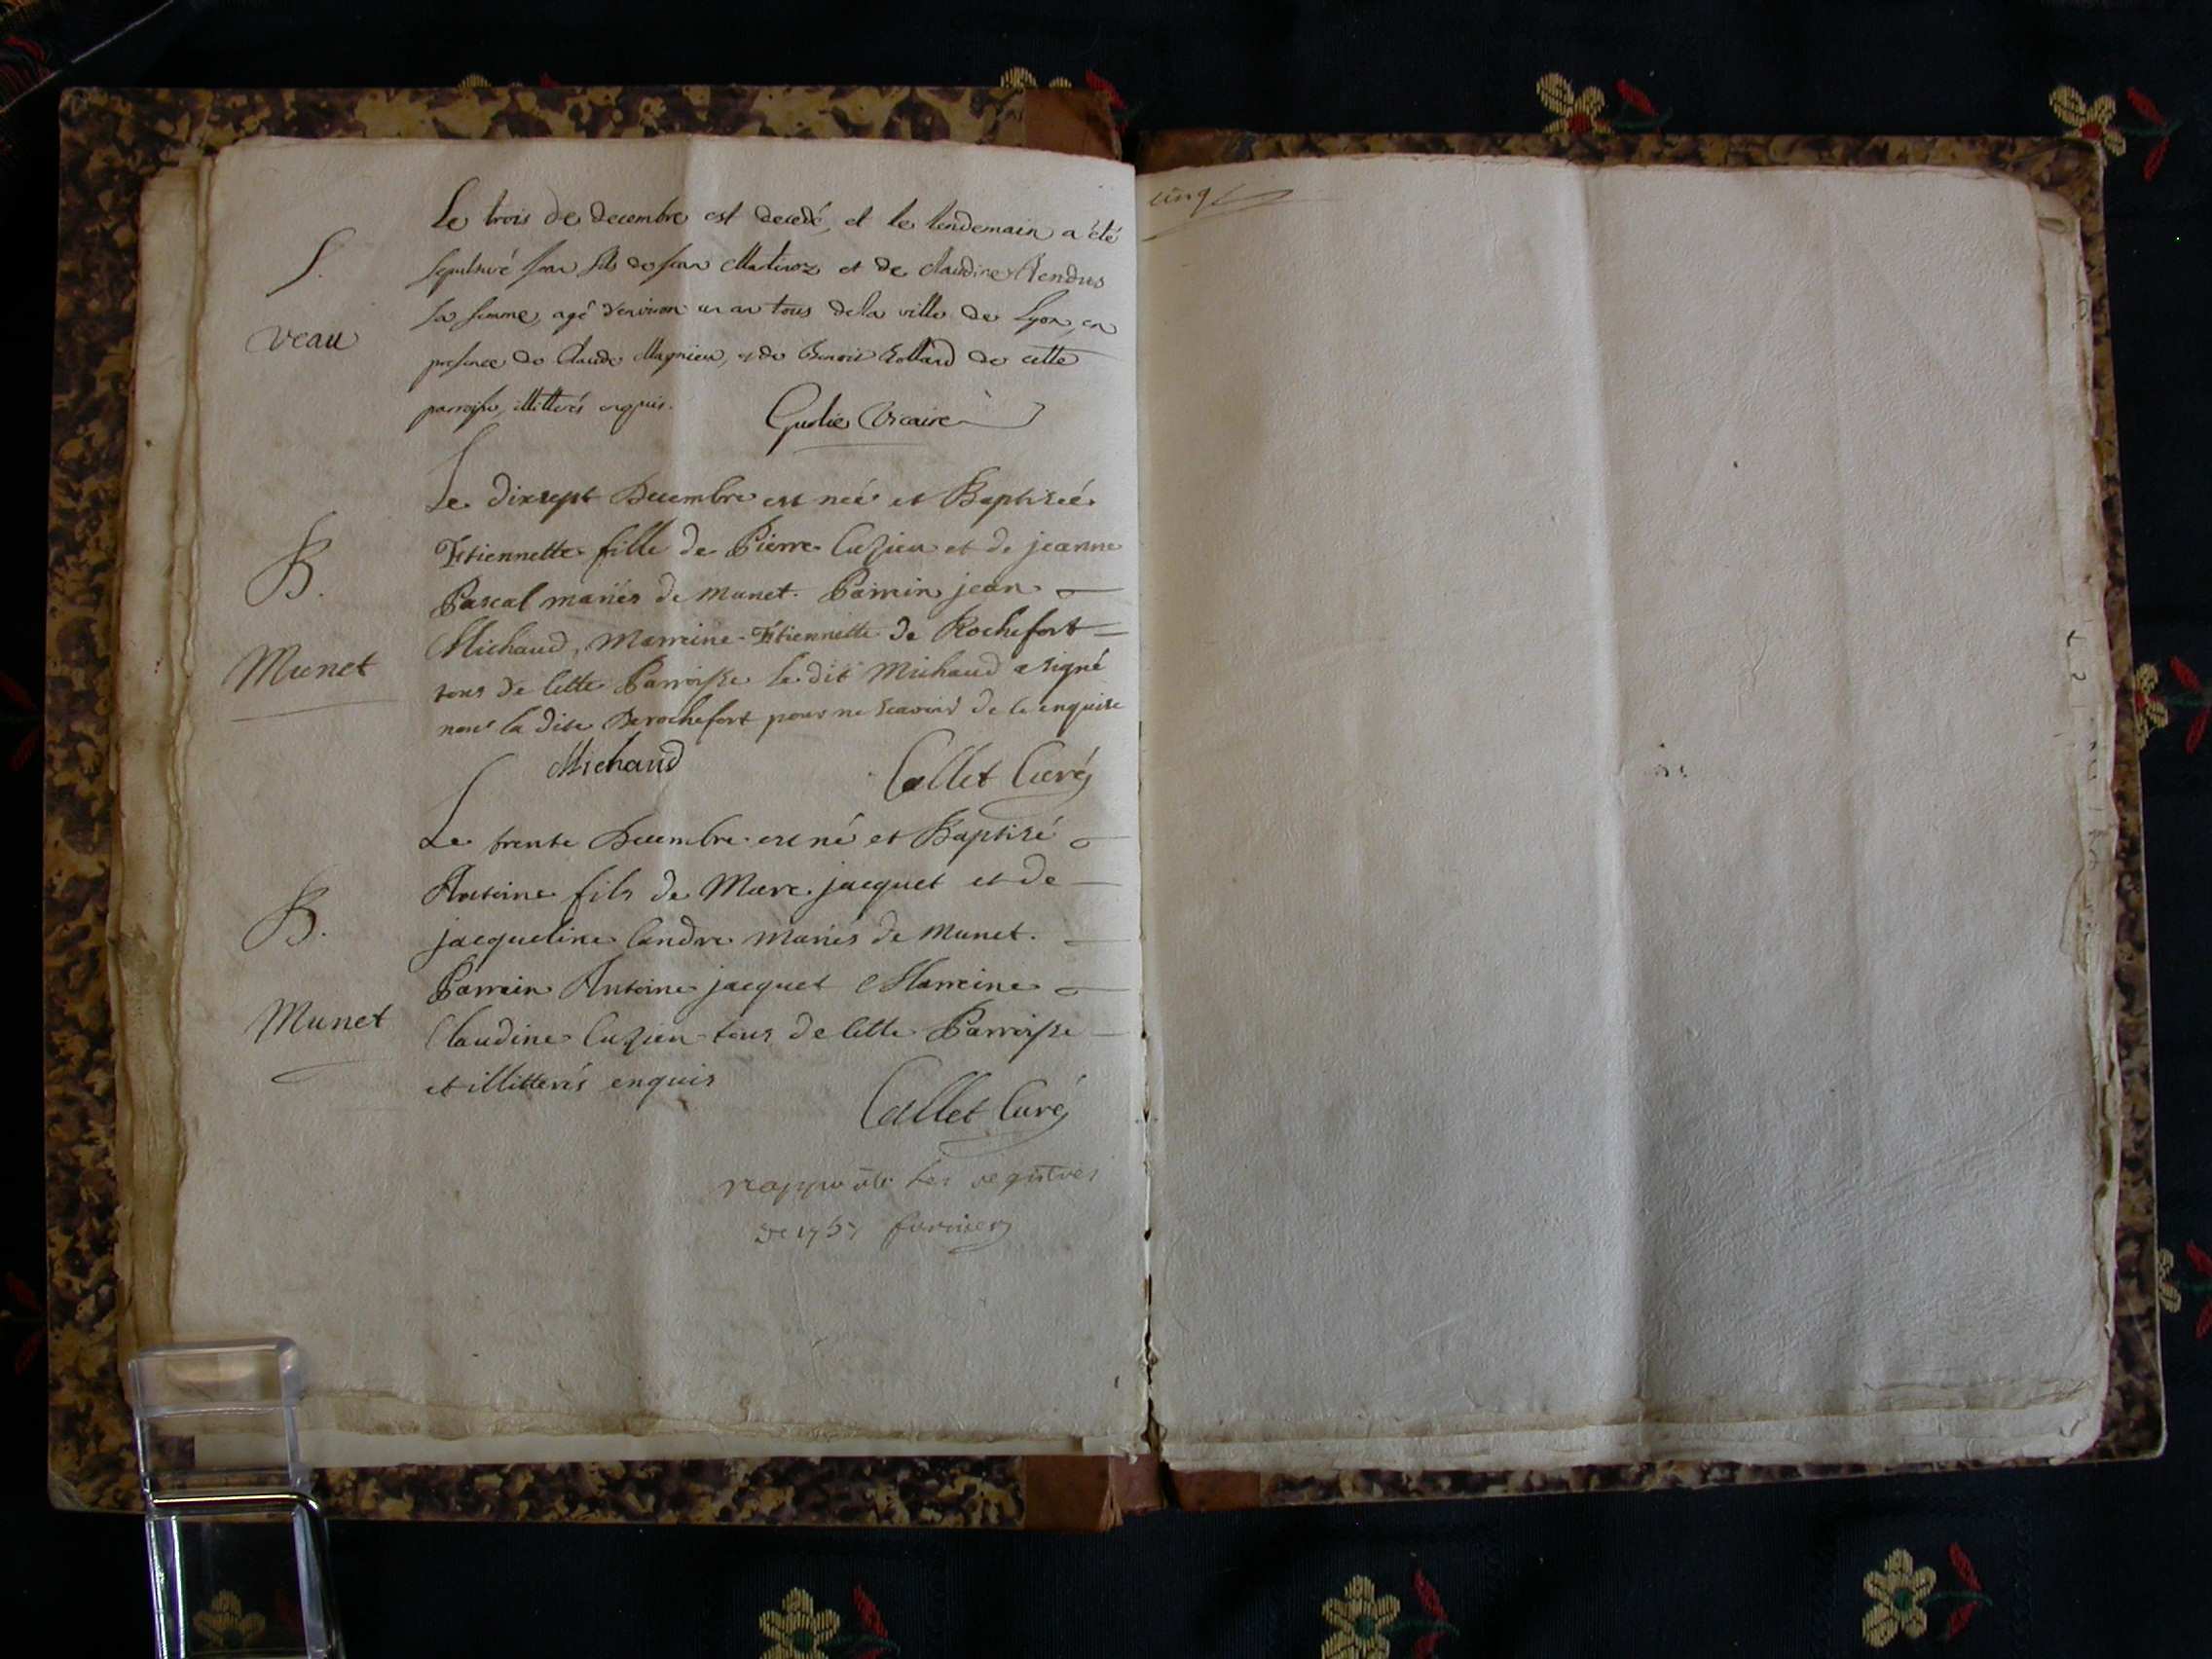 Le trois de decembre est decedé, et le lendemain a été
S.
sepulturé jean fils de jean Martinoz et de Claudine
veau
sa femme, agé d'environ un an tous de la ville de Lyon, en
presence de Claude Magnien, et de Benoit Rollard de cette
parroisse, illitterés enquis.
Vicaire
Le dixsept Decembre est neé et Baptizeé
B.
Etiennette fille de Pierre Cuzieu et de jeanne
Pascal mariés de munet. Parrain jean
Munet
Michaud, Marreine Etiennette de Rochefort
tous de Cette Parroisse le dit Michaud a signé
non la dite Derochefort pour ne scavoir de ce enquise
Michaud
Collet Curé
Le trente Decembre est né et Baptizé
B.
Antoine fils de Marc jacquet et de
jacqueline Candre mariés de munet.
Parrein Antoine jacquet Marreine
Munet
Claudine Cuzieu tous de Cette Parroisse
et illitterés enquis
Collet Curé
rapporté les registres
de 1757
cinq